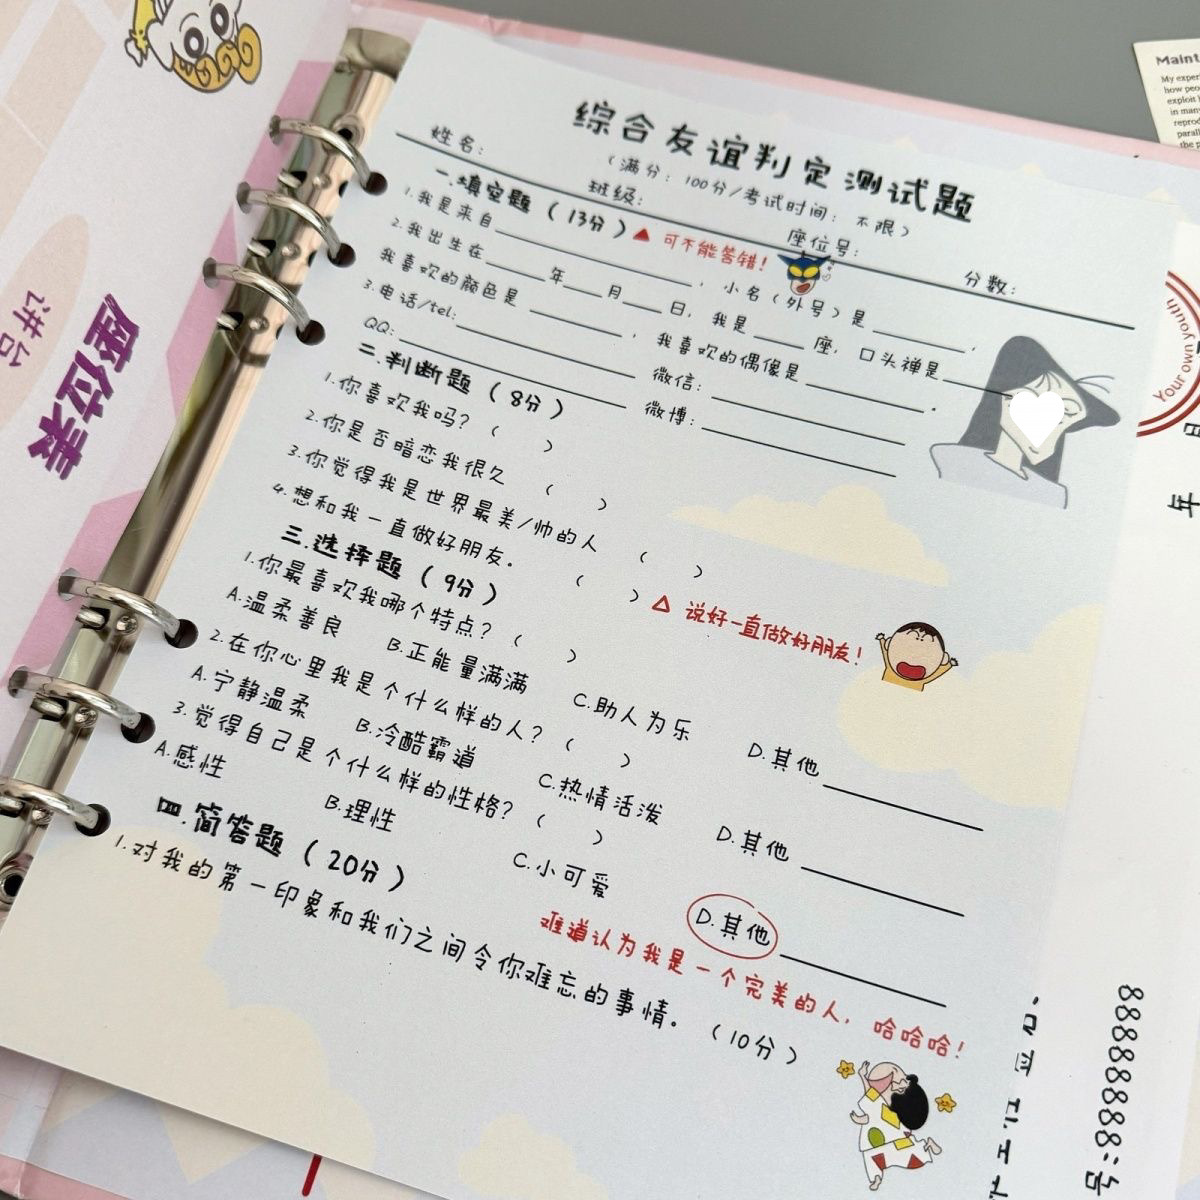 综合友谊判定测试题
(满分: 100分/考试时间: 不限)
姓名: 班级: 座位号: 分数:
一.填空题(13分) 可不能答错!
1.我是来自 , 小名(外号)是 ,
2.我出生在 年 月 日, 我是 座, 口头禅是
我喜欢的颜色是 , 我喜欢的偶像是 .
3.电话/tel: 微信:
QQ: 微博:
二.判断题(8分)
1.你喜欢我吗? ( )
2.你是否暗恋我很久 ( )
3.你觉得我是世界最美/帅的人 ( )
4.想和我一直做好朋友。 ( ) 说好一直做好朋友!
三.选择题(9分)
1.你最喜欢我哪个特点? ( )
A.温柔善良 B.正能量满满 C.助人为乐 D.其他
2.在你心里我是个什么样的人? ( )
A.宁静温柔 B.冷酷霸道 C.热情活泼 D.其他
3.觉得自己是个什么样的性格? ( )
A.感性 B.理性 C.小可爱 D.其他
难道认为我是一个完美的人, 哈哈哈!
四.简答题(20分)
1.对我的第一印象和我们之间令你难忘的事情。(10分)
座位表
讲台
Your own youth
年 月
88888888